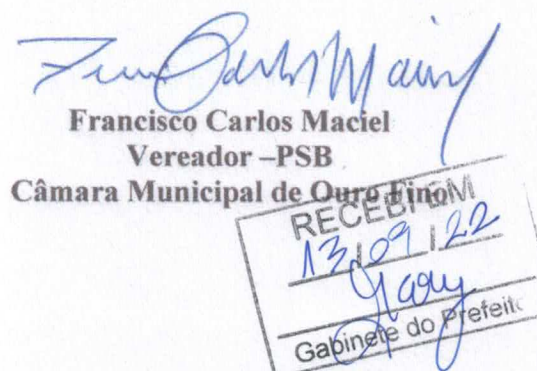 Francisco Carlos Maciel
Vereador –PSB
Câmara Municipal de Ouro Fino
RECEBI EM
13/09/22
Gabinete do Prefeito